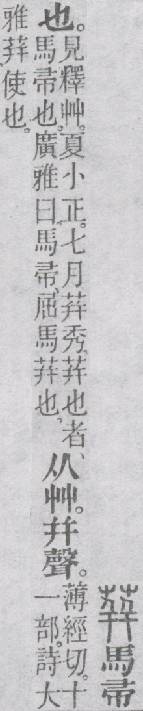 荓馬帚
也。
見釋艸。夏小正。七月荓秀。荓也者、
馬帚也。廣雅曰。馬帚、屈馬荓也。
从艸。幷聲。
薄經切。十
一部。詩大
雅荓使也。